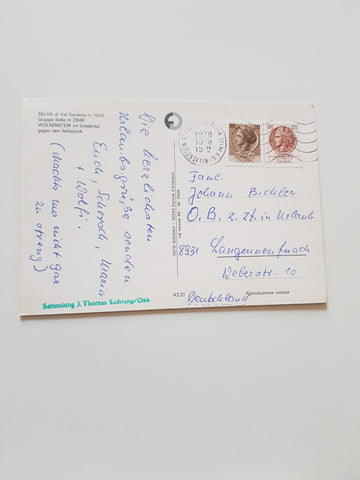 SELVA di Val Gardena m 1553
Gruppo Sella m 2946
WOLKENSTEIN im Grödental
gegen den Sellastock
Die herzlichsten
Urlaubsgrüße senden
Euch, Schorsch, Maria
+ Wolfi.
(Machts nur nicht gar
zu streng)
Sammlung J. Thomas Sachrang/Obb.
1978
15
Fam.
Johann Bichler
O,B, z.Zt. in Urlaub
8931 Langenneufnach
Weberstr. 10
Deutschland
43.21
Riproduzione vietata